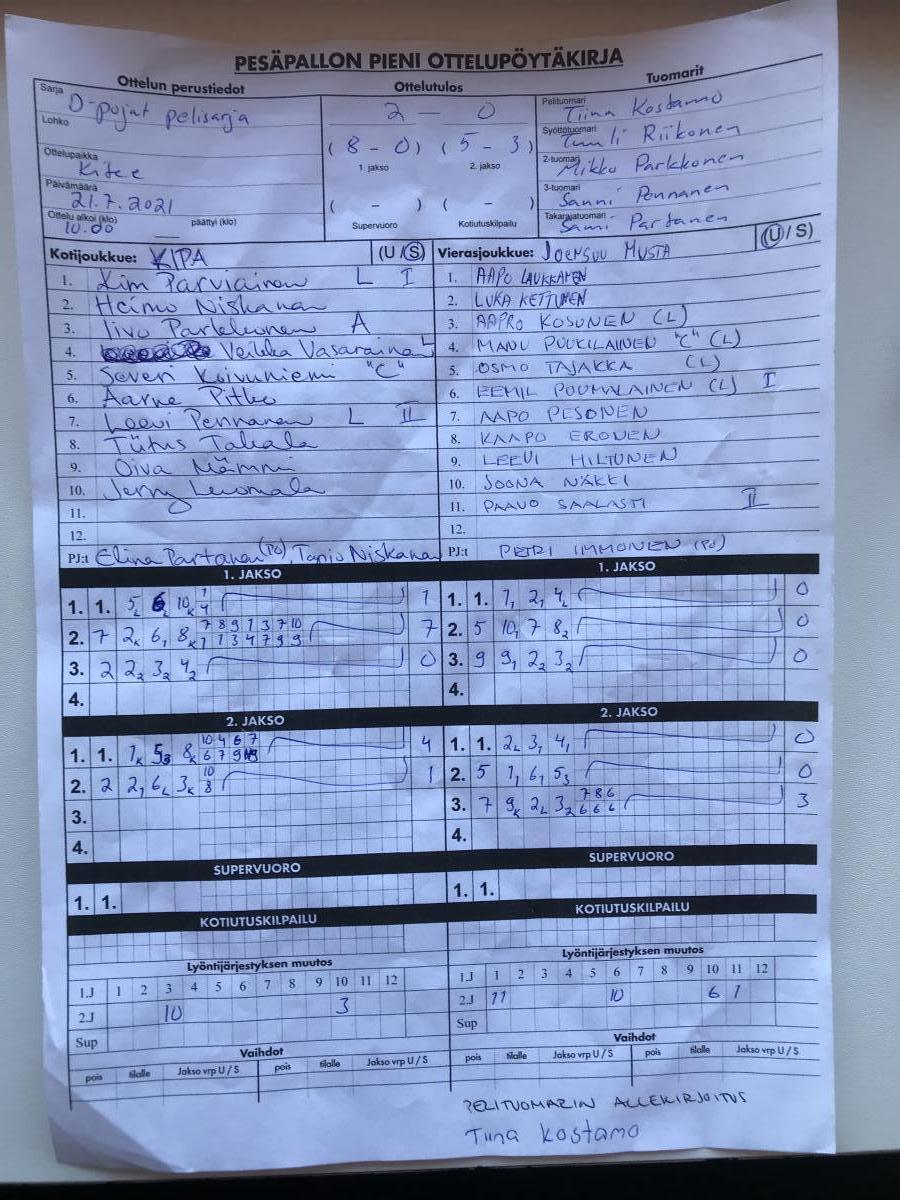 PESÄPALLON PIENI OTTELUPÖYTÄKIRJA
Ottelun perustiedot
Sarja D-pojat pelisarja
Lohko
Ottelupaikka Kitee
Päivämäärä 21.7.2021
Ottelu alkoi (klo) 10.00 päättyi (klo)
Ottelutulos
2 — 0
(8 - 0) (5 - 3)
1. jakso 2. jakso
( - ) ( - )
Supervuoro Kotiutuskilpailu
Tuomarit
Pelituomari Tiina Kostamo
Syöttötuomari Tuuli Riikonen
2-tuomari Mikko Parkkonen
3-tuomari Sanni Pennanen
Takarajatuomari Sami Partanen
Kotijoukkue: KIPA (U / S)
1. Kim Parviainen L I
2. Heimo Niskanen
3. Iivo Parkkonen A
4. Veikka Vasarainen L
5. Severi Koivuniemi "C"
6. Aarne Pitko
7. Leevi Pennanen L II
8. Tiitus Takala
9. Oiva Nämmi
10. Jerry Leuomala
11.
12.
PJ:t Elina Partanen (PO), Tanja Niskanen
Vierasjoukkue: JOENSUU MUSTA (U / S)
1. AAPO LAUKKANEN
2. LUKA KETTUNEN
3. AAPRO KOSONEN (L)
4. MANU PUUKILAINEN "C" (L)
5. OSMO TAJAKKA (L)
6. EEMIL PUUMALAINEN (L) I
7. AAPO PESONEN
8. KAAPO ERONEN
9. LEEVI HILTUNEN
10. JOONA NÄKKI
11. PAAVO SAALASTI II
12.
PJ:t PETRI IMMONEN (PO)
1. JAKSO
1. 1. 5L 6L 10K 1 4 1
2. 7 2K 6, 8K 7 8 9 1 3 7 10 1 1 3 4 7 9 9 7
3. 2 22 32 42 0
4.
2. JAKSO
1. 1. 1K 53 8K 10 4 6 7 6 7 9 4
2. 2 21 6L 3K 10 8 1
3.
4.
SUPERVUORO
1. 1.
KOTIUTUSKILPAILU
Lyöntijärjestyksen muutos
1.J 1 2 3 4 5 6 7 8 9 10 11 12
2.J 10 3
Sup
Vaihdot
pois tilalle Jakso vrp U / S pois tilalle Jakso vrp U / S
1. JAKSO
1. 1. 1, 2, 4L 0
2. 5 10, 7 82 0
3. 9 91 22 32 0
4.
2. JAKSO
1. 1. 2L 3, 4, 0
2. 5 1, 6, 53 0
3. 7 9K 2L 32 7 8 6 6 6 6 3
4.
SUPERVUORO
1. 1.
KOTIUTUSKILPAILU
Lyöntijärjestyksen muutos
1.J 1 2 3 4 5 6 7 8 9 10 11 12
2.J 11 10 6 1
Sup
Vaihdot
pois tilalle Jakso vrp U / S pois tilalle Jakso vrp U / S
PELITUOMARIN ALLEKIRJOITUS
Tiina Kostamo